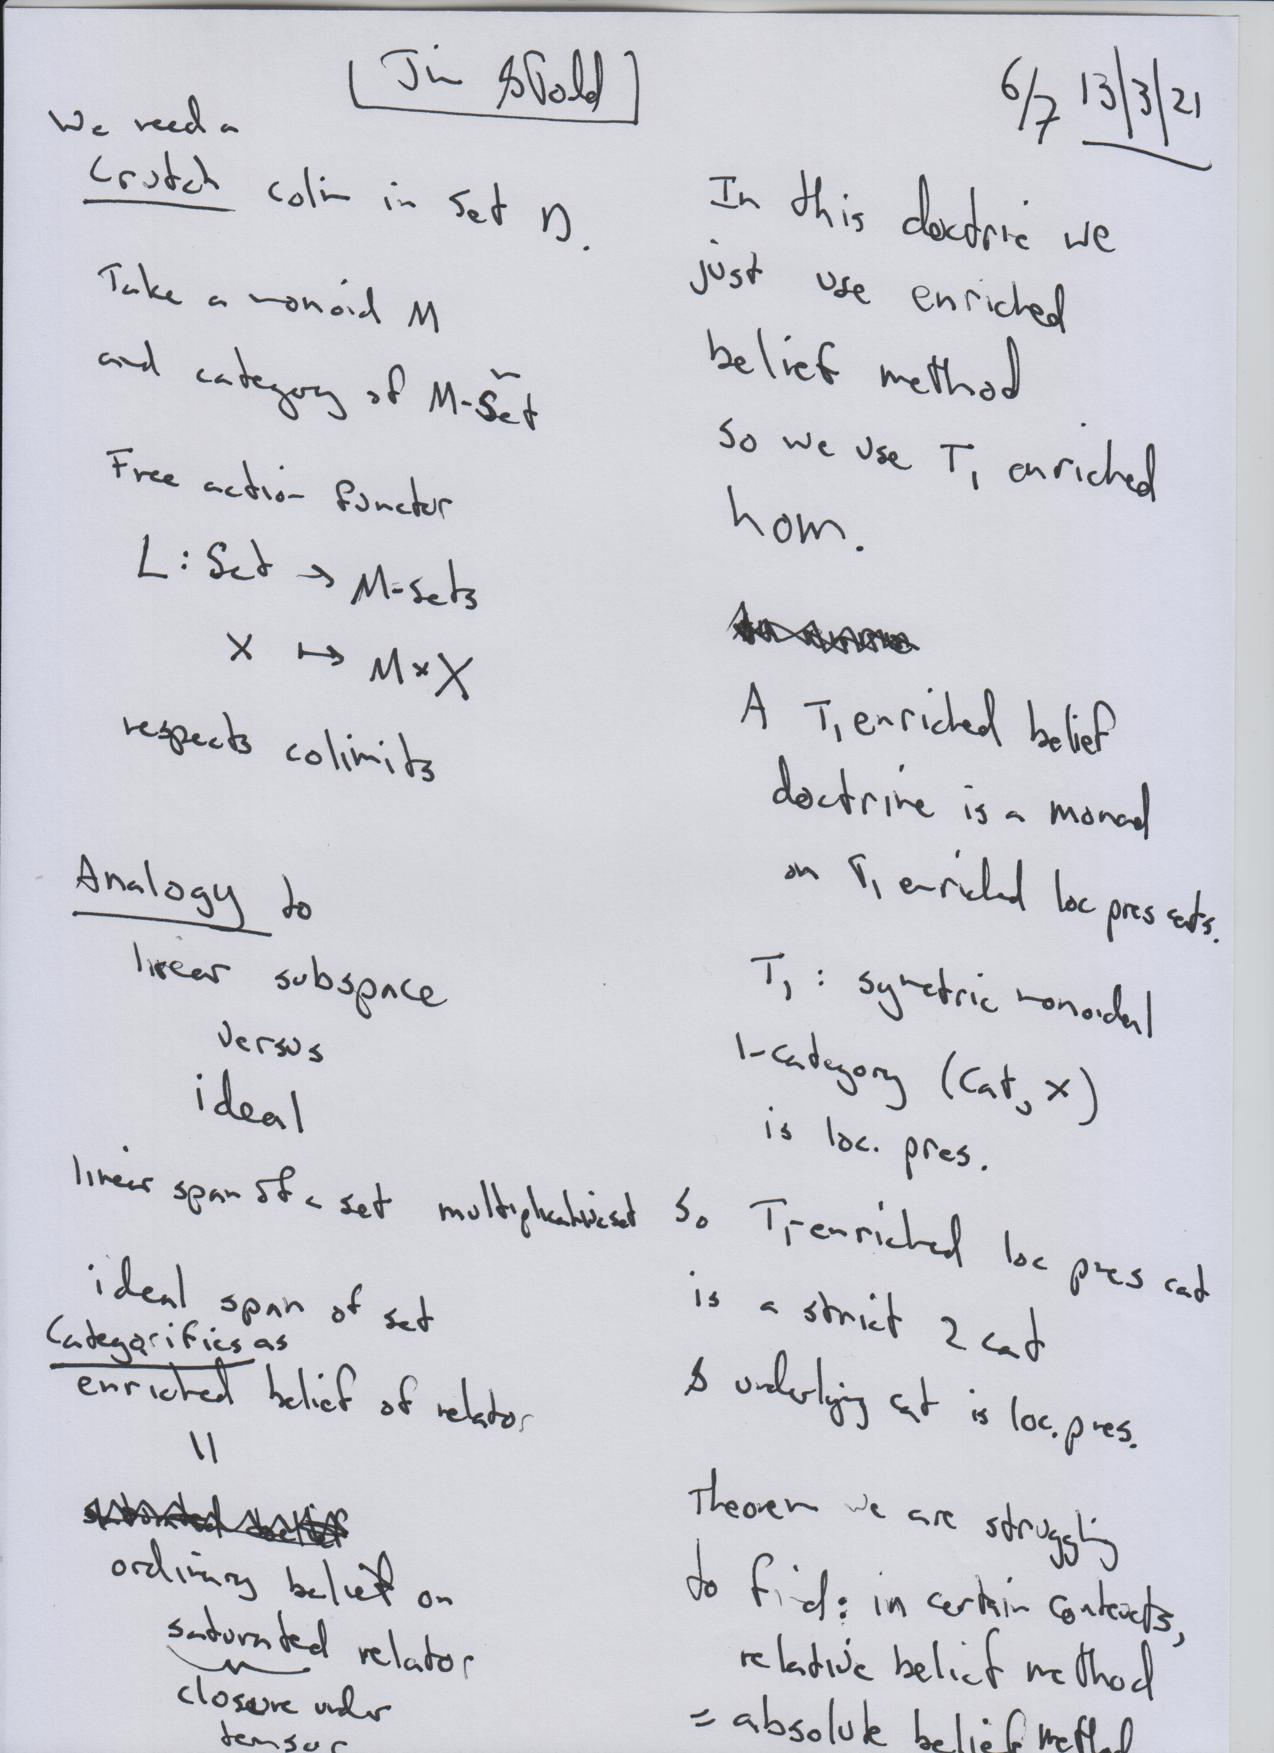 [Jim Stold]
6/7 13/3/21
We need a
Crutch colim in Set D.
Take a monoid M
and category of M-Set
Free action functor
L : Set → M-sets
X ↦ M × X
respects colimits
Analogy to
linear subspace
versus
ideal
linear span of a set multiplicative set
ideal span of set
Categorifies as
enriched belief of relator
||
ordinary belief on
saturated relator
closure under
tensor
In this doctrine we
just use enriched
belief method
so we use T₁ enriched
hom.
A T₁ enriched belief
doctrine is a monad
on T₁ enriched loc pres cats.
T₁ : symetric monoidal
1-category (Cat, ×)
is loc. pres.
So T₁-enriched loc pres cat
is a strict 2 cat
& underlying cat is loc. pres.
Theorem we are struggling
to find: in certain contexts,
relative belief method
= absolute belief method